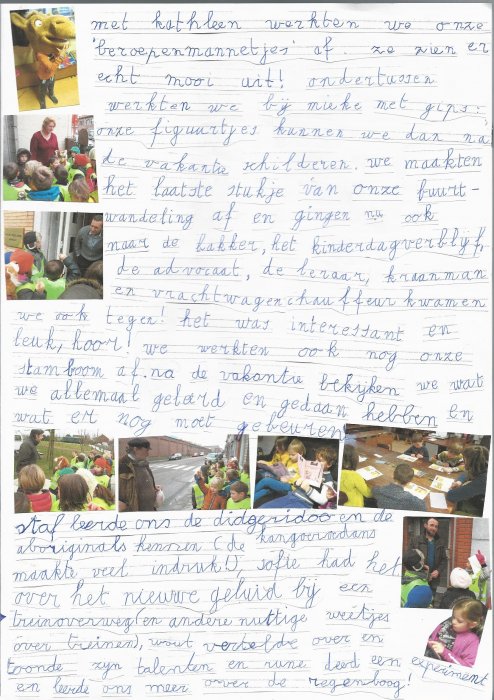 met kathleen werkten we onze
'beroepenmannetjes' af. ze zien er
echt mooi uit! ondertussen
werkten we bij mieke met gips:
onze figuurtjes kunnen we dan na
de vakantie schilderen. we maakten
het laatste stukje van onze buurt-
wandeling af en gingen nu ook
naar de bakker, het kinderdagverblijf,
de advocaat, de leraar, kraanman
en vrachtwagenchauffeur kwamen
we ook tegen! het was interessant en
leuk, hoor! we werkten ook nog onze
stamboom af. na de vakantie bekijken we wat
we allemaal geleerd en gedaan hebben en
wat er nog moet gebeuren
staf leerde ons de didgeridoo en de
aboriginals kennen (de kangoeroedans
maakte veel indruk!), sofie had het
over het nieuwe geluid bij een
treinoverweg (en andere nuttige weetjes
over treinen), wout vertelde over en
toonde zijn talenten en rune deed een experiment
en leerde ons meer over de regenboog!